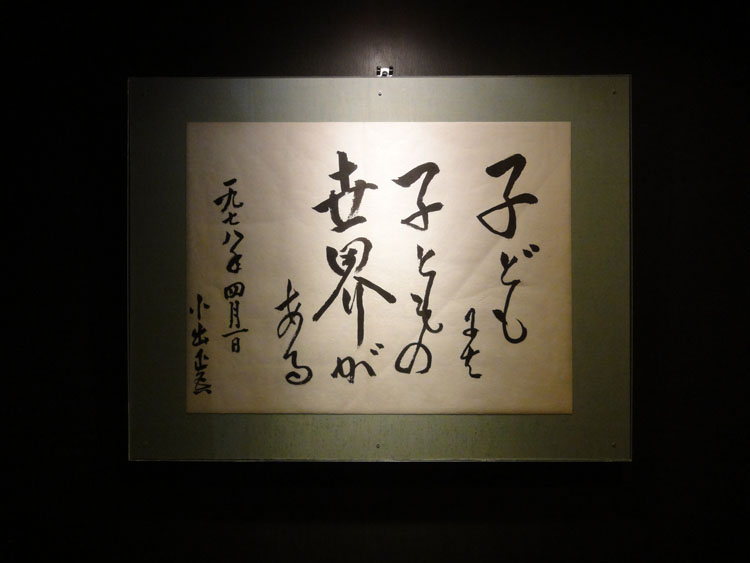 子ども
には
子どもの
世界が
ある
一九七八年四月一日
小出正吾